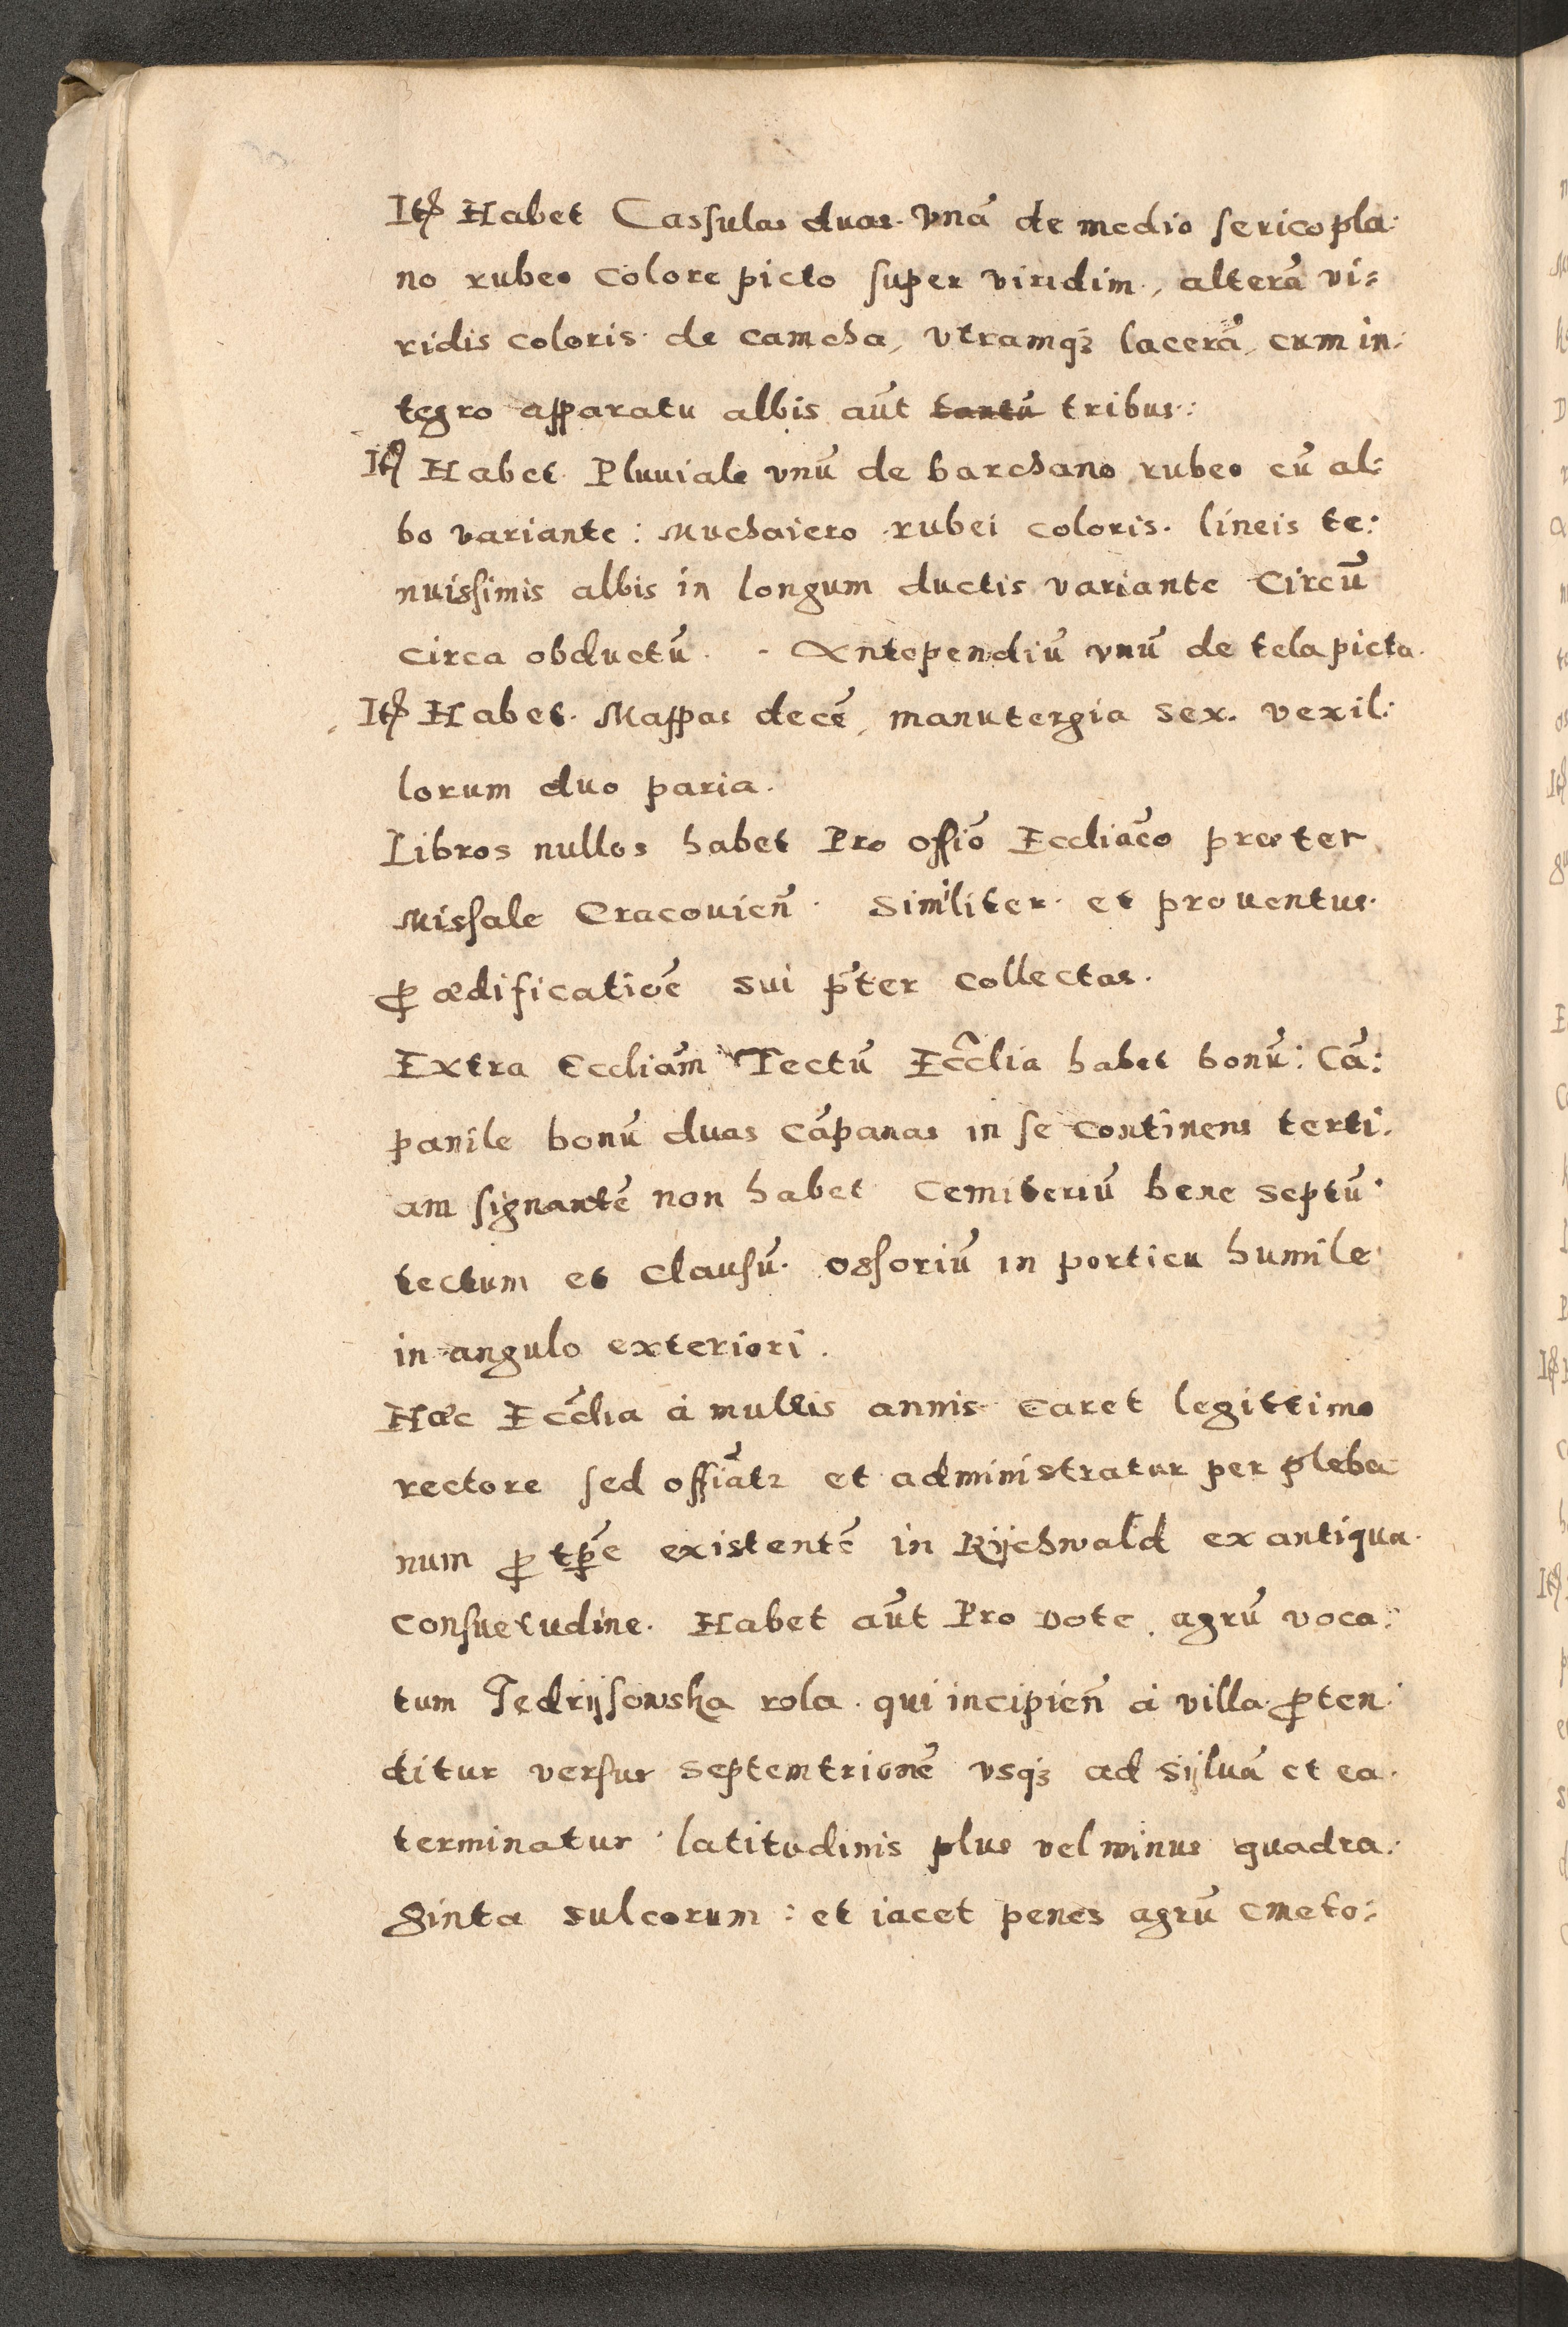 Itꝫ Habet Cassulas duas. vnā de medio serico pla:
no rubeo colore picto super viridim, alterā vi=
ridis coloris de camcha, vtramqꝫ lacerā, cum in:
tegro apparatu albis aūt tantū tribus:
Itꝫ Habet Pluuiale vnū de barchano rubeo cū al:
bo variante: Muchaiero rubei coloris. lineis te:
nuissimis albis in longum ductis variante Circū
circa obductū. - Antependiū vnū de tela picta.
Itꝫ Habet. Mappas decē, manutergia sex. vexil:
lorum duo paria.
Libros nullos habet Pro offio̅ Eccliac̅o preter
Missale Cracouien̄. Similiter et prouentus
ꝓ ædificatiōe sui p̄ter collectas.
Extra Eccliām Tectū Eccl̄ia habet bonū: Cā:
panile bonū duas cāpanas in se continens terti:
am signantē non habet Cemiteriū bene septū
tectum et clausū. ossoriū in porticu humile
in angulo exteriori.
Hæc Eccl̄ia à multis annis caret legittimo
rectore sed offiāt2 et administratur per pleba
num ꝓ tp̄e existentē in Rÿchwald ex antiqua
consuetudine. Habet aūt Pro Dote, agrū voca:
tum Jedrÿsowska rola. qui incipien̄ à villa ꝓten
ditur versus septemtrionē vsqꝫ ad sÿluā et ea
terminatur. latitudinis plus vel minus quadra:
ginta sulcorum: et iacet penes agrū cmeto: